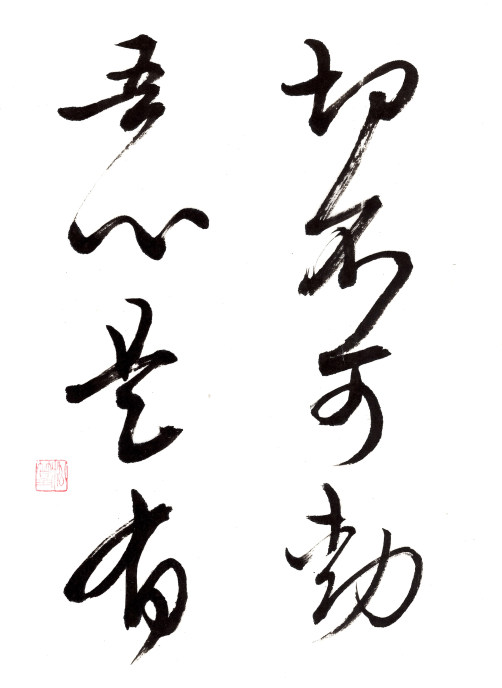 切不可動
吾心是有